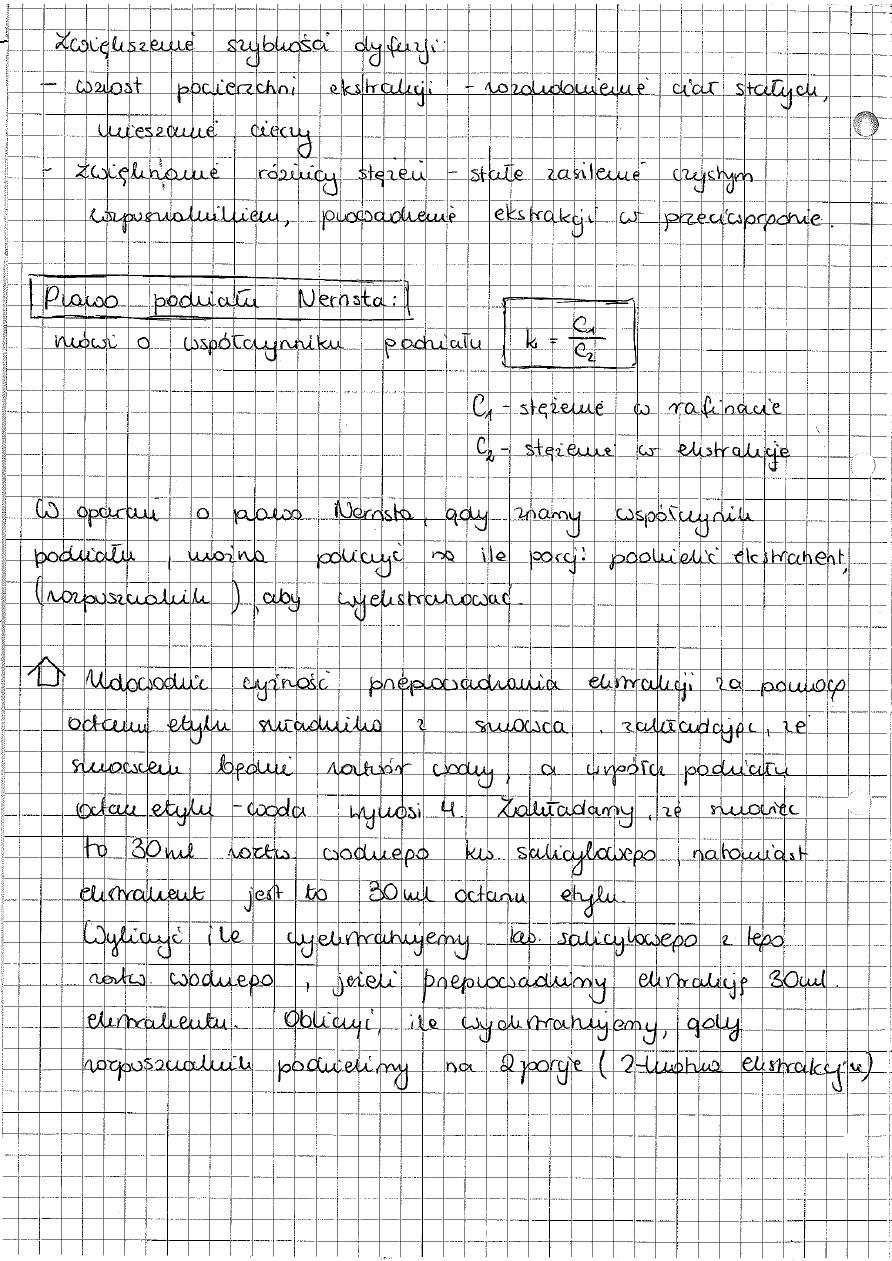 Zwiększenie szybkości dyfuzji:
- wzrost powierzchni ekstrakcji - rozdrobnienie ciał stałych,
mieszanie cieczy
- zwiększanie różnicy stężeń - stałe zasilenie czystym
rozpuszczalnikiem, prowadzenie ekstrakcji w przeciwprądzie.
Prawo podziału Nernsta:
mówi o współczynniku podziału k = C1/C2
C1 - stężenie w rafinacie
C2 - stężenie w ekstrakcie
W oparciu o prawo Nernsta, gdy znamy współczynnik
podziału, można policzyć na ile porcji podzielić ekstrahent,
(rozpuszczalnik), aby wyekstrahować.
Udowodnić przeprowadzania ekstrakcji za pomocą
octanu etylu składnika z surowca, zakładając, że
surowcem będzie roztwór wodny, a współcz podziału
octan etylu - woda wynosi 4. Zakładamy, że surowiec
to 30ml roztw. wodnego kw. salicylowego, natomiast
ekstrahent jest to 30ml octanu etylu.
Wyliczyć ile wyekstrahujemy kw. salicylowego z tego
roztw. wodnego, jeżeli przeprowadzimy ekstrakcję 30ml
ekstrahentu. Obliczyć, ile wyekstrahujemy, gdy
rozpuszczalnik podzielimy na 2 porcje (2-krotna ekstrakcja)